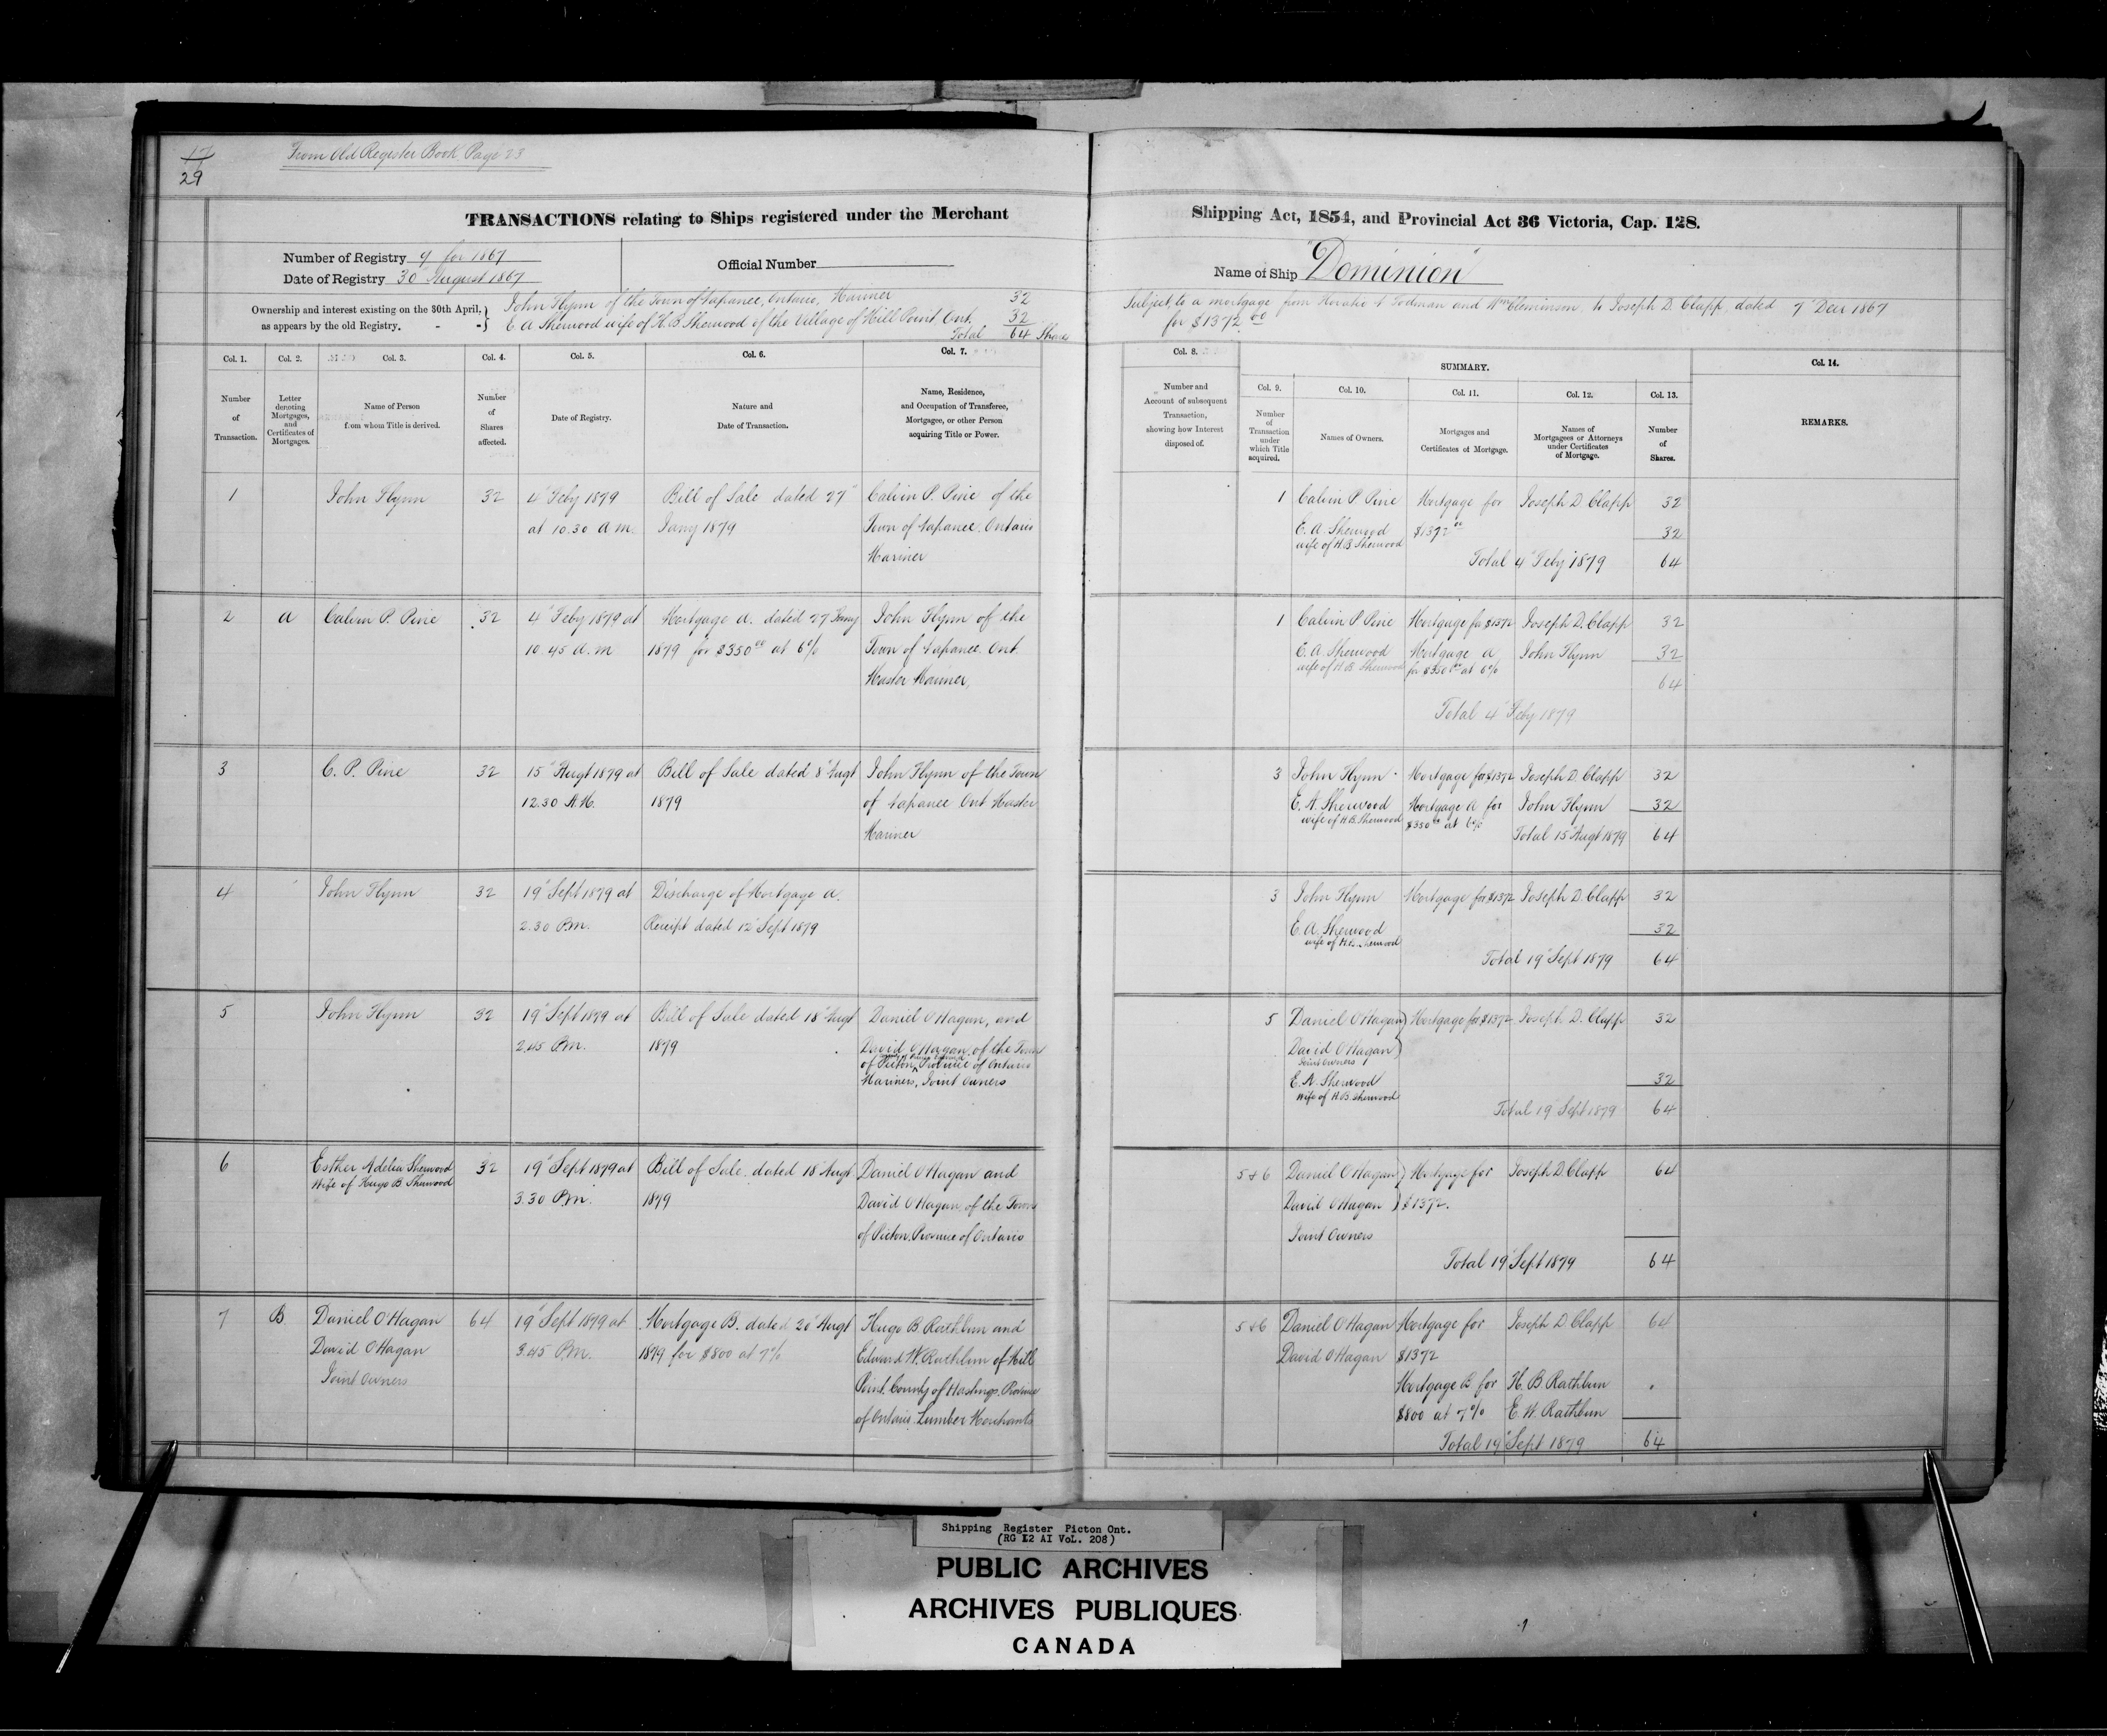 17
29
From Old Register Book Page 23
TRANSACTIONS relating to Ships registered under the Merchant
Number of Registry 9 for 1867
Date of Registry 30" August 1867
Official Number
Ownership and interest existing on the 30th April,
as appears by the old Registry.
John Flynn of the Town of Napanee, Ontario, Mariner 32
E A Sherwood wife of H. B Sherwood of the Village of Mill Point Ont. 32
Total 64 Shares
Col. 1. Col. 2. Col. 3. Col. 4. Col. 5. Col. 6. Col. 7.
Number
of
Transaction.
Letter
denoting
Mortgages,
and
Certificates of
Mortgages.
Name of Person
from whom Title is derived.
Number
of
Shares
affected.
Date of Registry.
Nature and
Date of Transaction.
Name, Residence,
and Occupation of Transferee,
Mortgagee, or other Person
acquiring Title or Power.
1 John Flynn 32 4" Feby 1879 Bill of Sale dated 27" Calvin P. Pine of the
at 10.30 a m. Jany 1879 Town of Napanee. Ontario
Mariner
2 a Calvin P. Pine 32 4" Feby 1879 at Mortgage A. dated 27 Jany John Flynn of the
10.45 a.m 1879 for $350 00 at 6% Town of Napanee. Ont.
Master Mariner,
3 C. P. Pine 32 15" Augt 1879 at Bill of Sale dated 8" Augt John Flynn of the Town
12.30 A.M. 1879 of Napanee Ont Master
Mariner
4 John Flynn 32 19" Sept 1879 at Discharge of Mortgage A.
2.30 P.m. Receipt dated 12" Sept 1879
5 John Flynn 32 19" Sept 1879 at Bill of Sale dated 18" Augt Daniel O'Hagan, and
2.45 P.m. 1879 David O'Hagan of the Town
County of Prince Edward
of Picton, Province of Ontario
Mariners, Joint Owners
6 Esther Adelia Sherwood 32 19" Sept 1879 at Bill of Sale dated 18" Augt Daniel O'Hagan and
Wife of Hugo B Sherwood 3.30 P.m. 1879 David O'Hagan of the Town
of Picton, Province of Ontario
7 B Daniel O'Hagan 64 19" Sept 1879 at Mortgage B. dated 20" Augt Hugo B. Rathbun and
David O'Hagan 3.45 P.m. 1879 for $800 at 7% Edward W. Rathbun of Mill
Joint Owners Point. County of Hastings. Province
of Ontario. Lumber Merchants
Shipping Act, 1854, and Provincial Act 36 Victoria, Cap. 128.
Name of Ship "Dominion"
Subject to a mortgage from Horatio N Todman and Wm Cleminson, to Joseph D. Clapp, dated 7" Decr 1867
for $1372.00
Col. 8. SUMMARY. Col. 14.
Number and
Account of subsequent
Transaction,
showing how Interest
disposed of.
Col. 9. Col. 10. Col. 11. Col. 12. Col. 13.
Number
of
Transaction
under
which Title
acquired.
Names of Owners.
Mortgages and
Certificates of Mortgage.
Names of
Mortgagees or Attorneys
under Certificates
of Mortgage.
Number
of
Shares.
REMARKS.
1 Calvin P Pine Mortgage for Joseph D Clapp 32
E. A. Sherwood $1372 00 32
wife of H.B Sherwood
Total 4" Feby 1879 64
1 Calvin P Pine Mortgage for $1372 Joseph D. Clapp 32
E. A. Sherwood Mortgage A John Flynn 32
wife of H B. Sherwood for $350 00 at 6%
64
Total 4" Feby 1879
3 John Flynn Mortgage for $1372 Joseph D. Clapp 32
E. A. Sherwood Mortgage A for John Flynn 32
wife of H.B. Sherwood $350 00 at 6%
Total 15" Augt 1879 64
3 John Flynn Mortgage for $1372 Joseph D. Clapp 32
E. A. Sherwood 32
wife of H.B. Sherwood
Total 19" Sept 1879 64
5 Daniel O'Hagan Mortgage for $1372 Joseph D. Clapp 32
David O'Hagan
Joint Owners
E. A. Sherwood 32
Wife of H.B. Sherwood
Total 19" Sept 1879 64
5 & 6 Daniel O'Hagan Mortgage for Joseph D Clapp 64
David O'Hagan $1372.
Joint Owners
Total 19" Sept 1879 64
5 & 6 Daniel O'Hagan Mortgage for Joseph D Clapp 64
David O'Hagan $1372
Mortgage B for H. B Rathbun
$800 at 7% E. W. Rathbun
Total 19" Sept 1879 64
Shipping Register Picton Ont.
(RG 12 AI VoL. 208)
PUBLIC ARCHIVES
ARCHIVES PUBLIQUES
CANADA